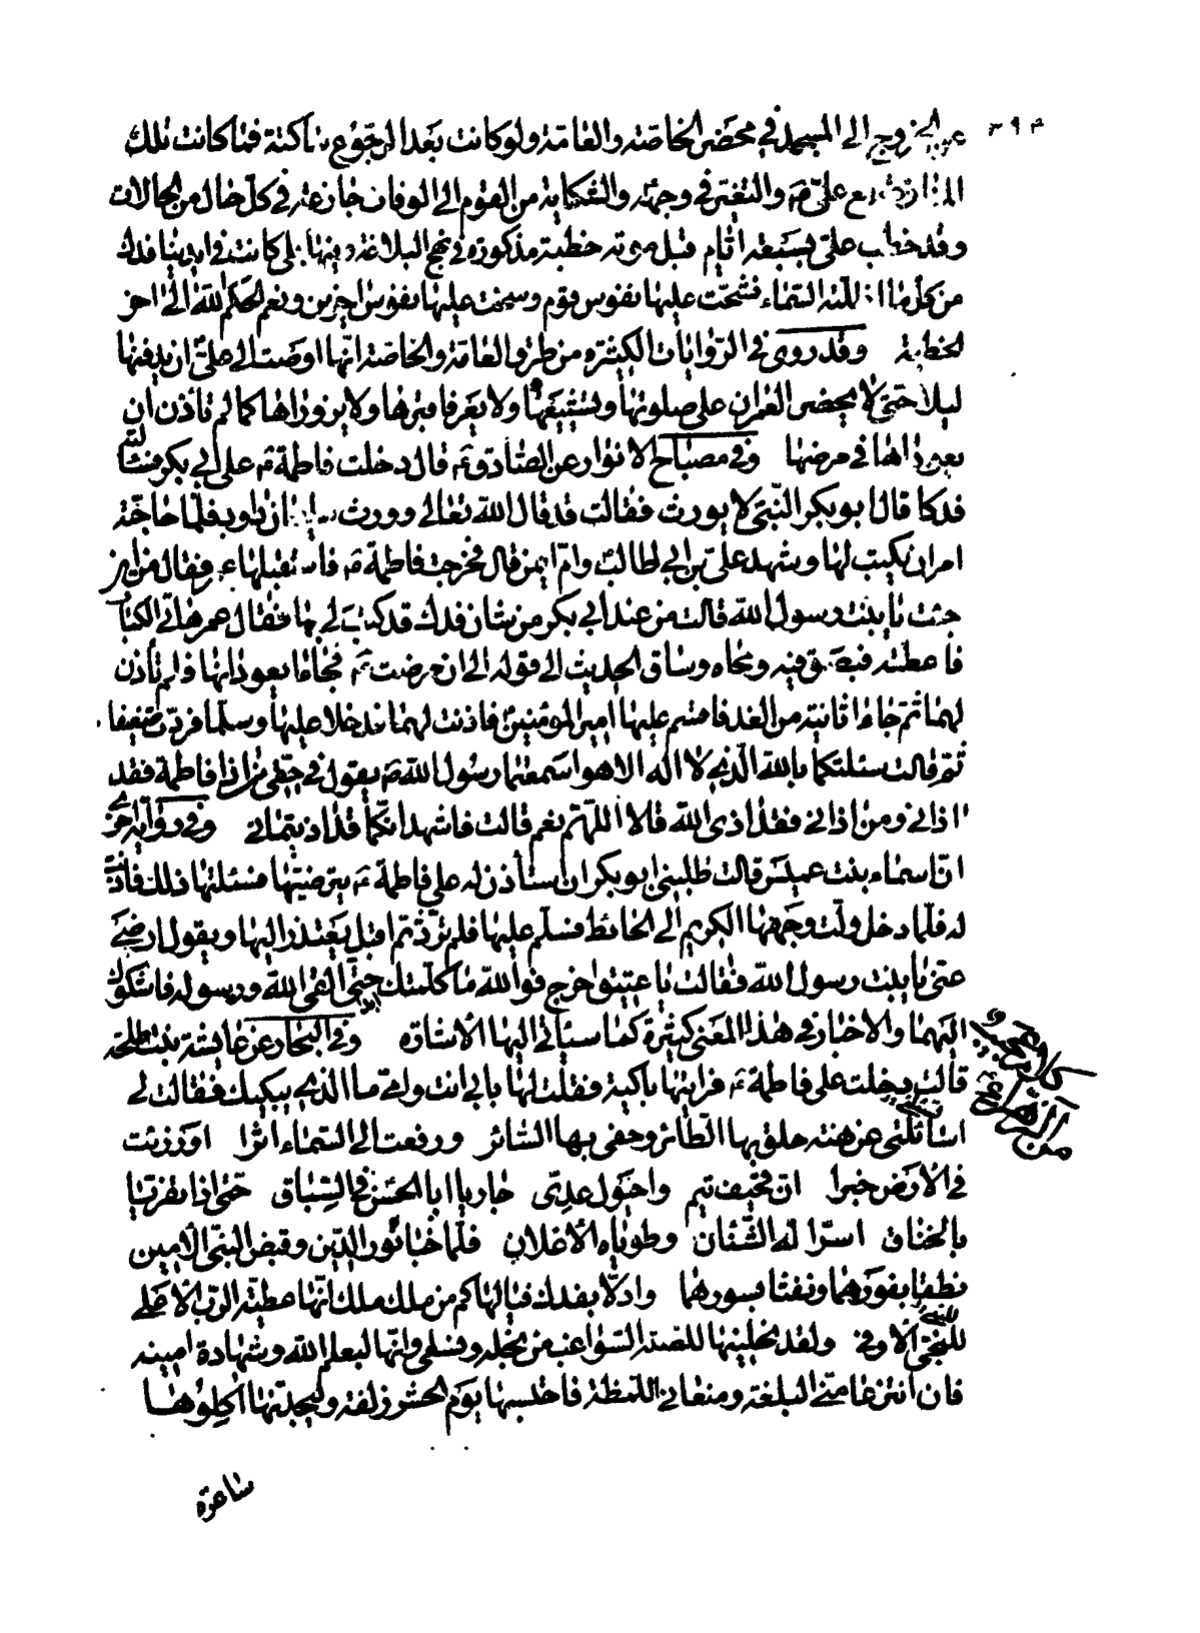 ٣٩٣
عن الخروج الى المسجد في محضر الخاصّة والعامّة ولو كانت بعد الرجوع ساكتة فما كانت تلك
مع علىّ ع والتغيّر في وجهه والشكاية من القوم الى الوفات جازعة في كلّ حال من الحالات
وقد خطب علىّ بسبعة ايّام قبل موته خطبة مذكورة في نهج البلاغة ومنها بلى كانت في ايدينا فدك
من كلّ ما اظلّته السّماء فشحّت عليها نفوس قوم وسخت عليها نفوس اخرين ونعم الحكم اللّه الى اخر
الخطبة وقد روى في الرّوايات الكثيرة من طرق العامّة والخاصّة انّها اوصت الى علىّ ان يدفنها
ليلا حتى لا يحضر العمران على صلوتها وتشييعها ولا يعرفا قبرها ولا يزوراها كما لم تاذن ان
يعوداها في مرضها وفي مصباح الانوار عن الصّادق ع قال دخلت فاطمة ع على ابي بكر فسئلته
فدكا قال ابو بكر النّبيّ لا يورث فقالت قد قال اللّه تعالى وورث سليمان داود فلمّا حاجّته
امر ان يكتب لها وشهد علىّ بن ابي طالب وامّ ايمن قال فخرجت فاطمة ع فاستقبلها عمر فقال من اين
جئت يا بنت رسول اللّه قالت من عند ابي بكر من شان فدك قد كتب لي بها فقال عمر هاتي الكتاب
فاعطته فبصق فيه ومحاه وساق الحديث الى قوله الى ان مرضت ع فجاءا يعودانها فلم تأذن
لهما ثمّ جاءا ثانية من الغد فاقسم عليها امير المؤمنين فاذنت لهما فدخلا عليها وسلّما فردّت ضعيفا
ثمّ قالت سئلتكما باللّه الّذي لا اله الا هو اسمعتما رسول اللّه ص يقول في حقّي من اذا فاطمة فقد
اذاني ومن اذاني فقد اذى اللّه قالا اللّهمّ نعم قالت فاشهد انّكما قد اذيتماني وفي رواية اخرى
انّ اسماء بنت عميس قالت طلبني ابو بكر ان استأذن له على فاطمة ع يترضّيها فسئلتها ذلك فاذنت
له فلمّا دخل ولّت وجهها الكريم الى الحائط فسلّم عليها فلم تردّ ثمّ اقبل يعتذر اليها ويقول ارضي
عنّي يا بنت رسول اللّه فقالت يا عتيق اخرج فواللّه ما كلّمتك حتّى القى اللّه ورسوله فاشكوك
اليهما والاخبار في هذا المعنى كثيرة كما سيأتي اليها الاشارة وفي البحار عن عايشة بنت طلحة
قالت دخلت على فاطمة ع فرايتها باكية فقلت لها بابي انت وامّي ما الّذي يبكيك فقالت لي
اسائلتي عن هنة حلق بها الطّائر وحفى بها السّائر ورفعت الى السّماء اثرا ورزئت
في الارض خبرا انّ قحيف تيم واحيول عدي جاريا ابا الحسن في السّباق حتّى اذا تفرّيا
بالخناق اسرّا له الشّنان وطوياه الاعلان فلمّا خبا نور الدّين وقبض النبيّ الامين
نطقا بفورهما ونفثا بسورهما وادلّا بفدك فيا لها كم من ملك ملك انّها عطيّة الرّب الاعلى
للنجيّ الاوفى ولقد نحلنيها للصّبية السّواغب من نجله ونسلي وانّها ليعلم اللّه وشهادة امينه
فان انتزعا منّي البلغة ومنعاني اللمظة فاحتسبها يوم الحشر زلفة وليجدنّها اكلوها
ساعرة